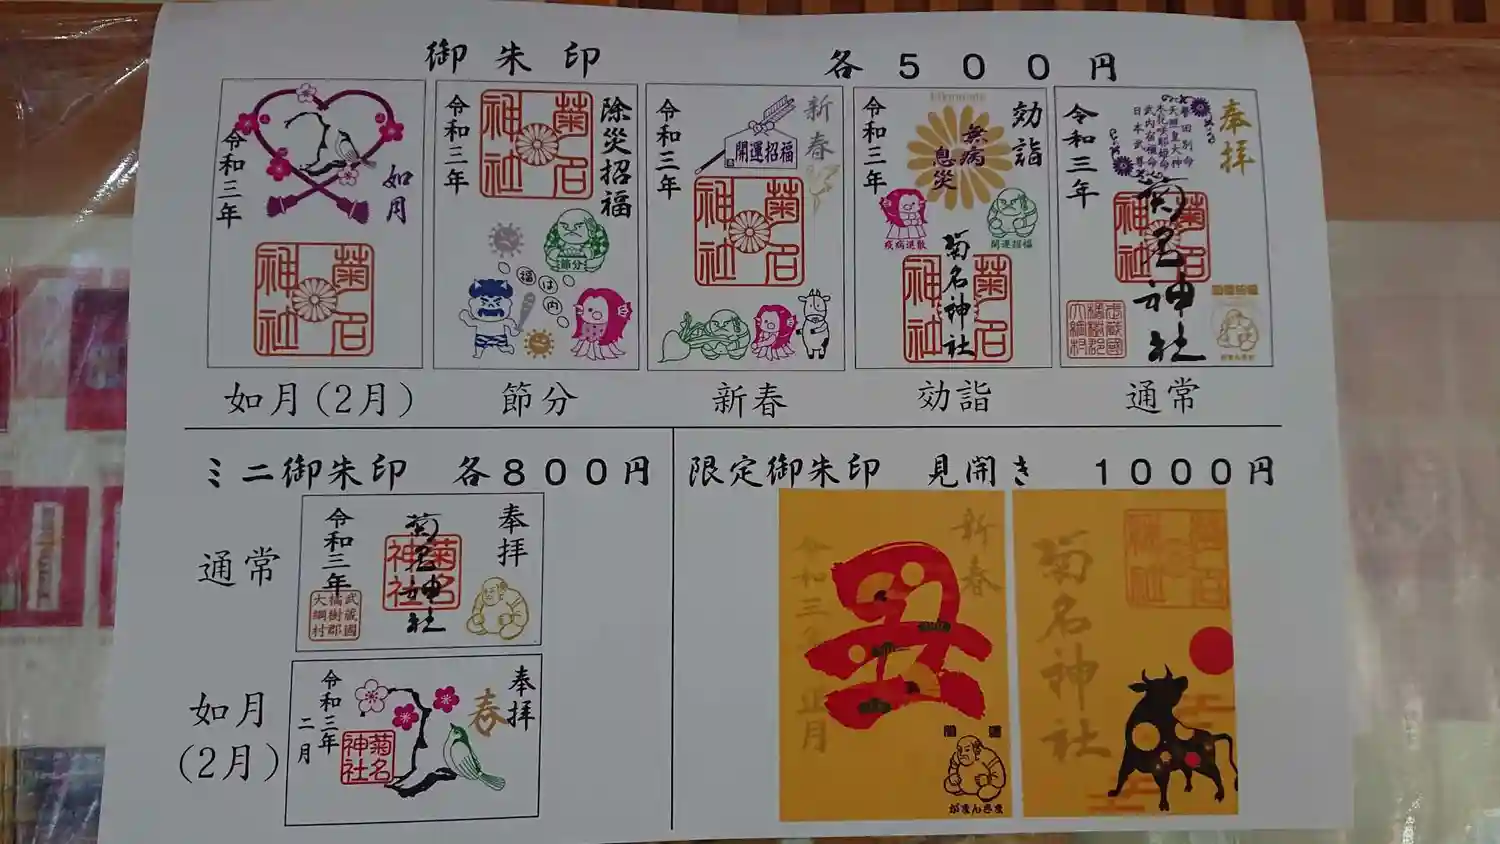 御朱印　各５００円
令和三年
如月
菊名神社
令和三年
除災招福
菊名神社
節分
福は内
令和三年
新春
開運招福
菊名神社
令和三年
効詣
無病息災
疫病退散
開運招福
菊名神社
菊名神社
令和三年
奉拝
誉田別命
天照皇大神
木花咲耶姫命
武内宿禰命
日本武尊
菊名神社
菊名神社
武蔵國
橘樹郡
大綱村
如月(2月)　節分　新春　効詣　通常
ミニ御朱印　各８００円
通常
奉拝
菊名神社
菊名神社
令和三年
武蔵國
橘樹郡
大綱村
如月
(2月)
奉拝
春
令和三年
二月
菊名神社
限定御朱印　見開き　１０００円
新春
丑
令和三年正月
がまんさま
菊名神社